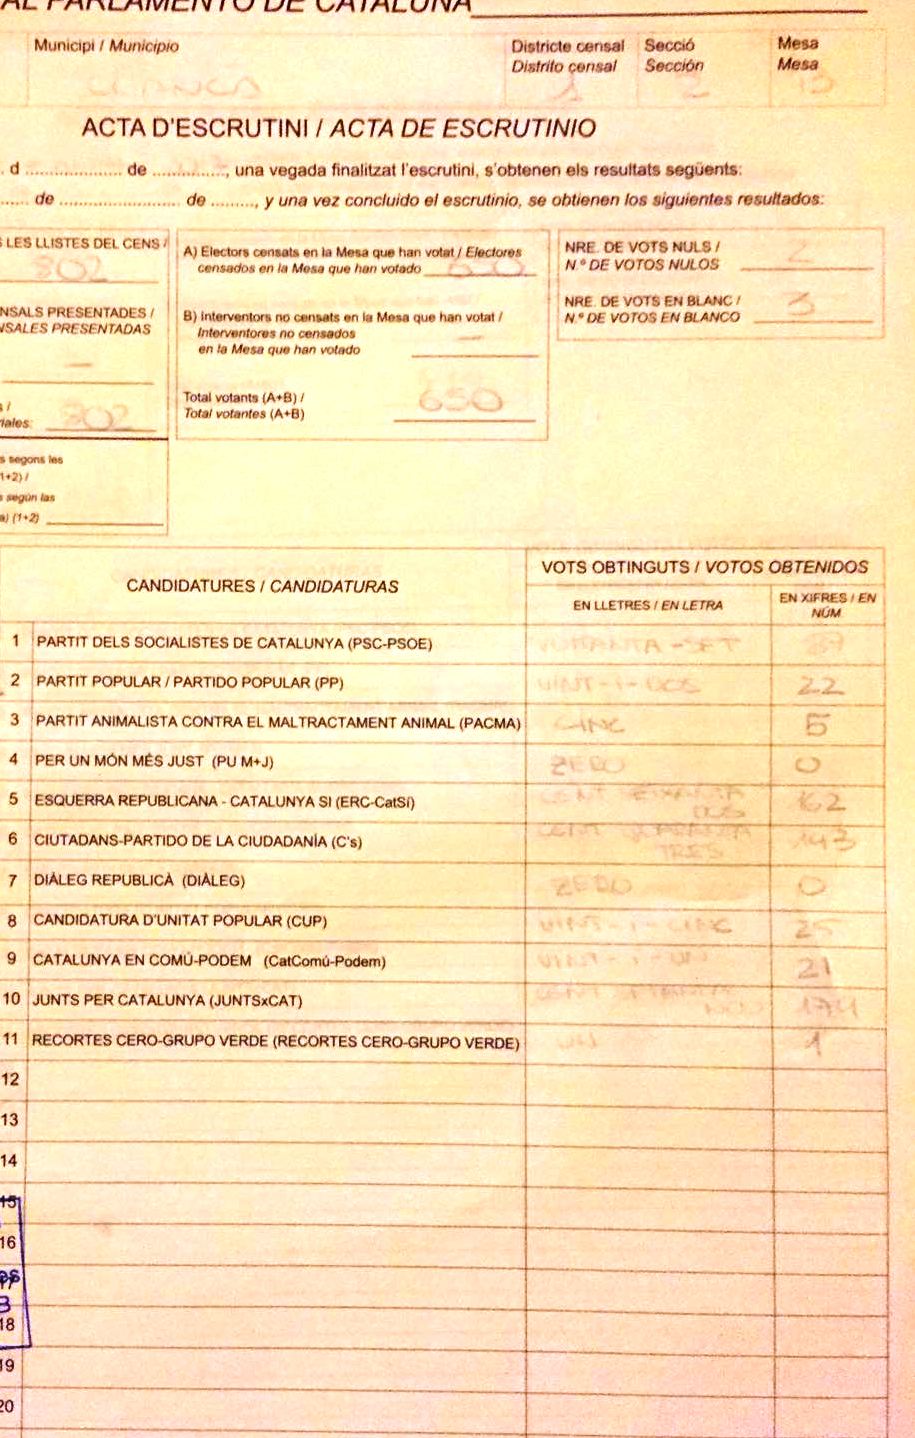 AL PARLAMENTO DE CATALUÑA
Municipi / Municipio
Districte censal Secció Mesa
Distrito censal Sección Mesa
1 2 B
ACTA D'ESCRUTINI / ACTA DE ESCRUTINIO
d .................... de ..............., una vegada finalitzat l'escrutini, s'obtenen els resultats següents:
...... de ........................ de ........., y una vez concluido el escrutinio, se obtienen los siguientes resultados:
LES LLISTES DEL CENS /
802
NSALS PRESENTADES /
NSALES PRESENTADAS
—
s /
riales: 802
s segons les
1+2) /
s según las
a) (1+2)
A) Electors censats en la Mesa que han votat / Electores
censados en la Mesa que han votado 650
B) Interventors no censats en la Mesa que han votat /
Interventores no censados
en la Mesa que han votado —
Total votants (A+B) / 650
Total votantes (A+B)
NRE. DE VOTS NULS / 2
N.º DE VOTOS NULOS
NRE. DE VOTS EN BLANC / 3
N.º DE VOTOS EN BLANCO
CANDIDATURES / CANDIDATURAS
VOTS OBTINGUTS / VOTOS OBTENIDOS
EN LLETRES / EN LETRA
EN XIFRES / EN
NÚM
1 PARTIT DELS SOCIALISTES DE CATALUNYA (PSC-PSOE)
2 PARTIT POPULAR / PARTIDO POPULAR (PP) VINT-I-DOS 22
3 PARTIT ANIMALISTA CONTRA EL MALTRACTAMENT ANIMAL (PACMA) CINC 5
4 PER UN MÓN MÉS JUST (PU M+J) ZERO 0
5 ESQUERRA REPUBLICANA - CATALUNYA SI (ERC-CatSí) CENT SEIXANTA DOS 162
6 CIUTADANS-PARTIDO DE LA CIUDADANÍA (C's) CENT QUARANTA TRES 143
7 DIÀLEG REPUBLICÀ (DIÀLEG) ZERO 0
8 CANDIDATURA D'UNITAT POPULAR (CUP) VINT-I-CINC 25
9 CATALUNYA EN COMÚ-PODEM (CatComú-Podem) VINT-I-UN 21
10 JUNTS PER CATALUNYA (JUNTSxCAT) CENT 174
11 RECORTES CERO-GRUPO VERDE (RECORTES CERO-GRUPO VERDE) UN 1
12
13
14
15
16
18
19
20